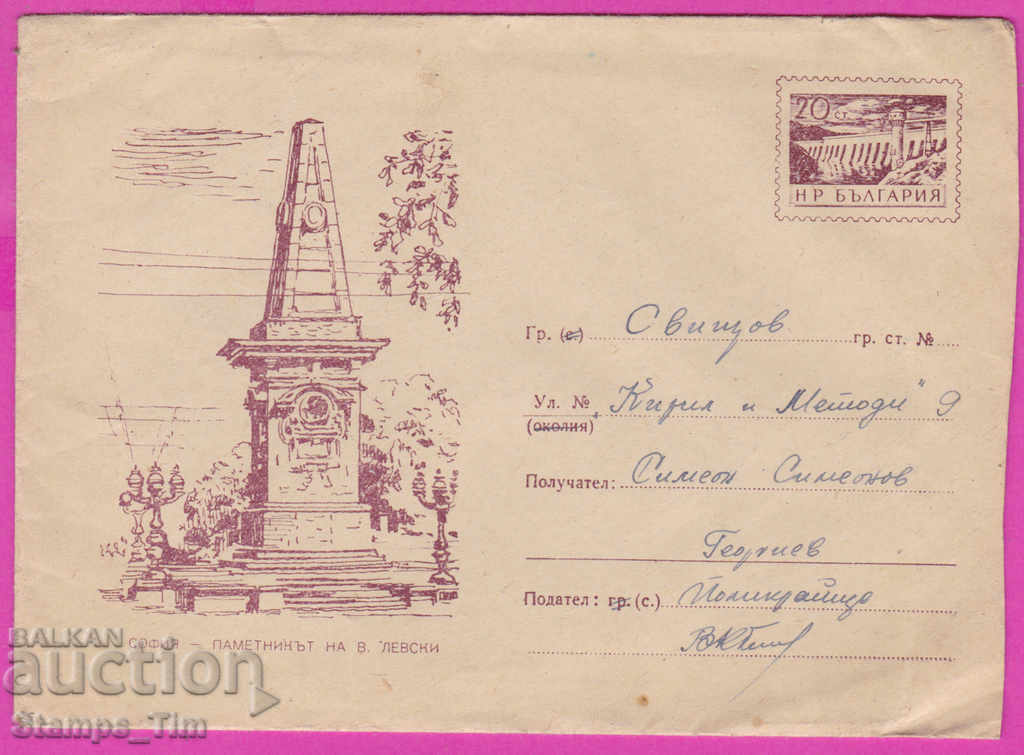 20 СТ.
НР БЪЛГАРИЯ
Гр. (с.) Свищов гр. ст. №
Ул. № "Кирил и Методи" 9
(околия)
Получател: Симеон Симеонов
Георгиев
Подател: гр. (с.) Поликраище
СОФИЯ – ПАМЕТНИКЪТ НА В. ЛЕВСКИ
BALKAN
auction
Stamps_Tim